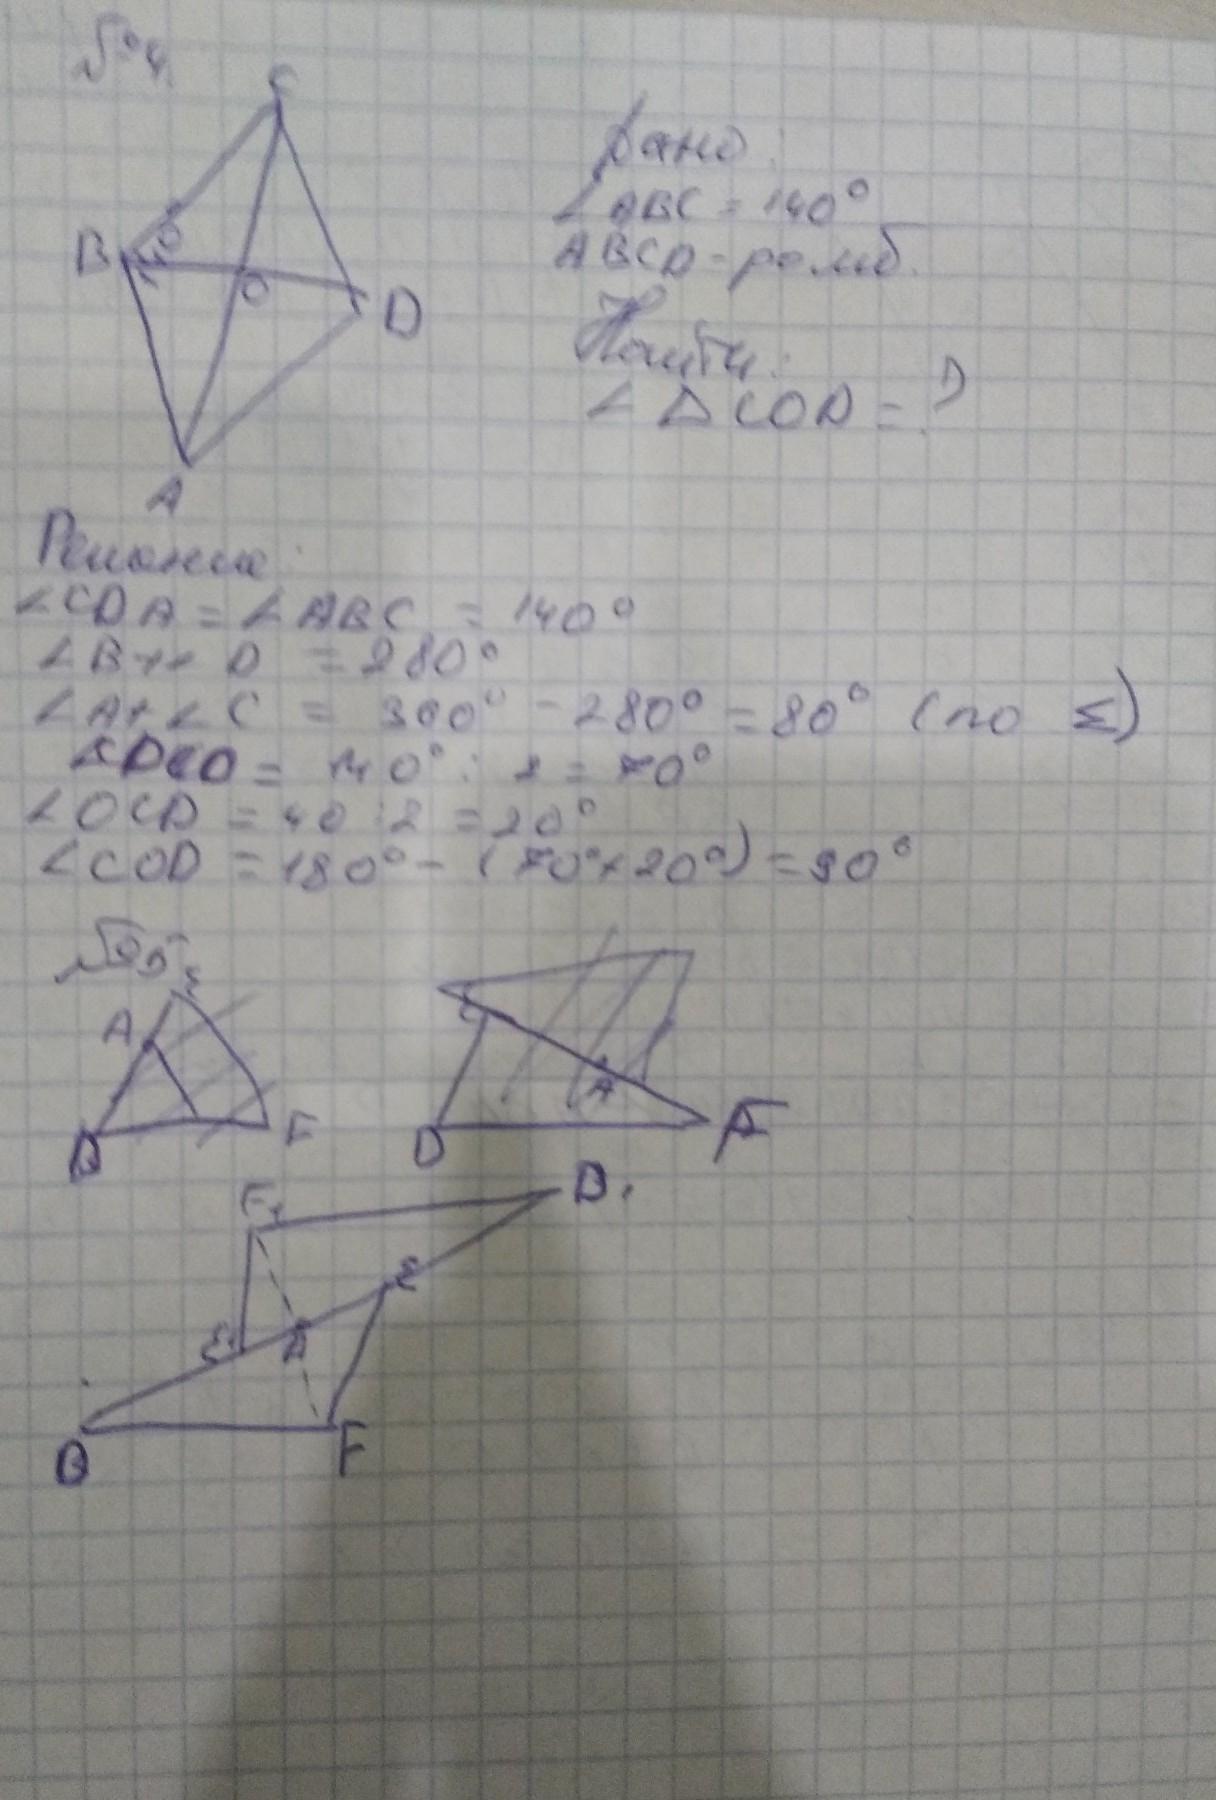 №4.
C
B
O
D
A
Дано:
∠ABC = 140°
ABCD - ромб.
Найти:
∠ △COD = ?
Решение:
∠CDA = ∠ABC = 140°
∠B + ∠D = 280°
∠A + ∠C = 360° - 280° = 80° (по Σ)
= 140° : 2 = 70°
∠OCD = 40 : 2 = 20°
∠COD = 180° - (70° + 20°) = 90°
№5
E
A
B
F
A
D
F₁
B₁
E
E₁
A
B
F